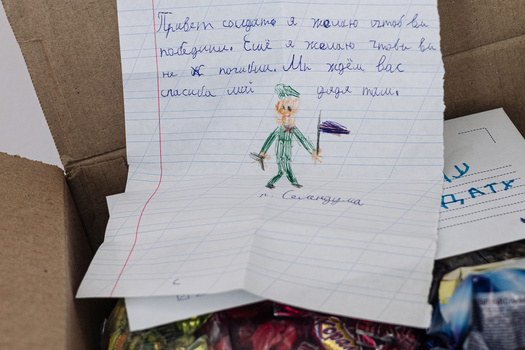 Привет солдата я желаю чтоб вы
победили. Ещё я желаю чтобы вы
не погибли. Мы ждём вас
спасиба мой дядя там.
п. Селендума
С
ДАТХ